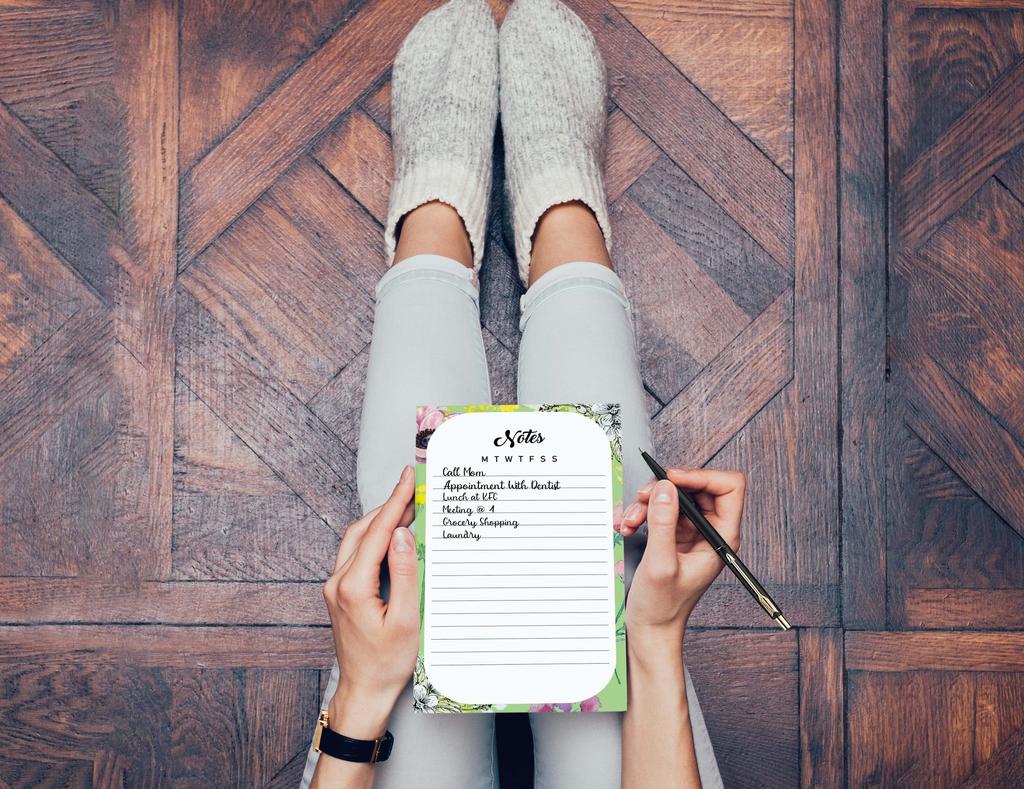 Notes
M T W T F S S
Call Mom
Appointment With Dentist
Lunch at KFC
Meeting @ 4
Grocery Shopping
Laundry